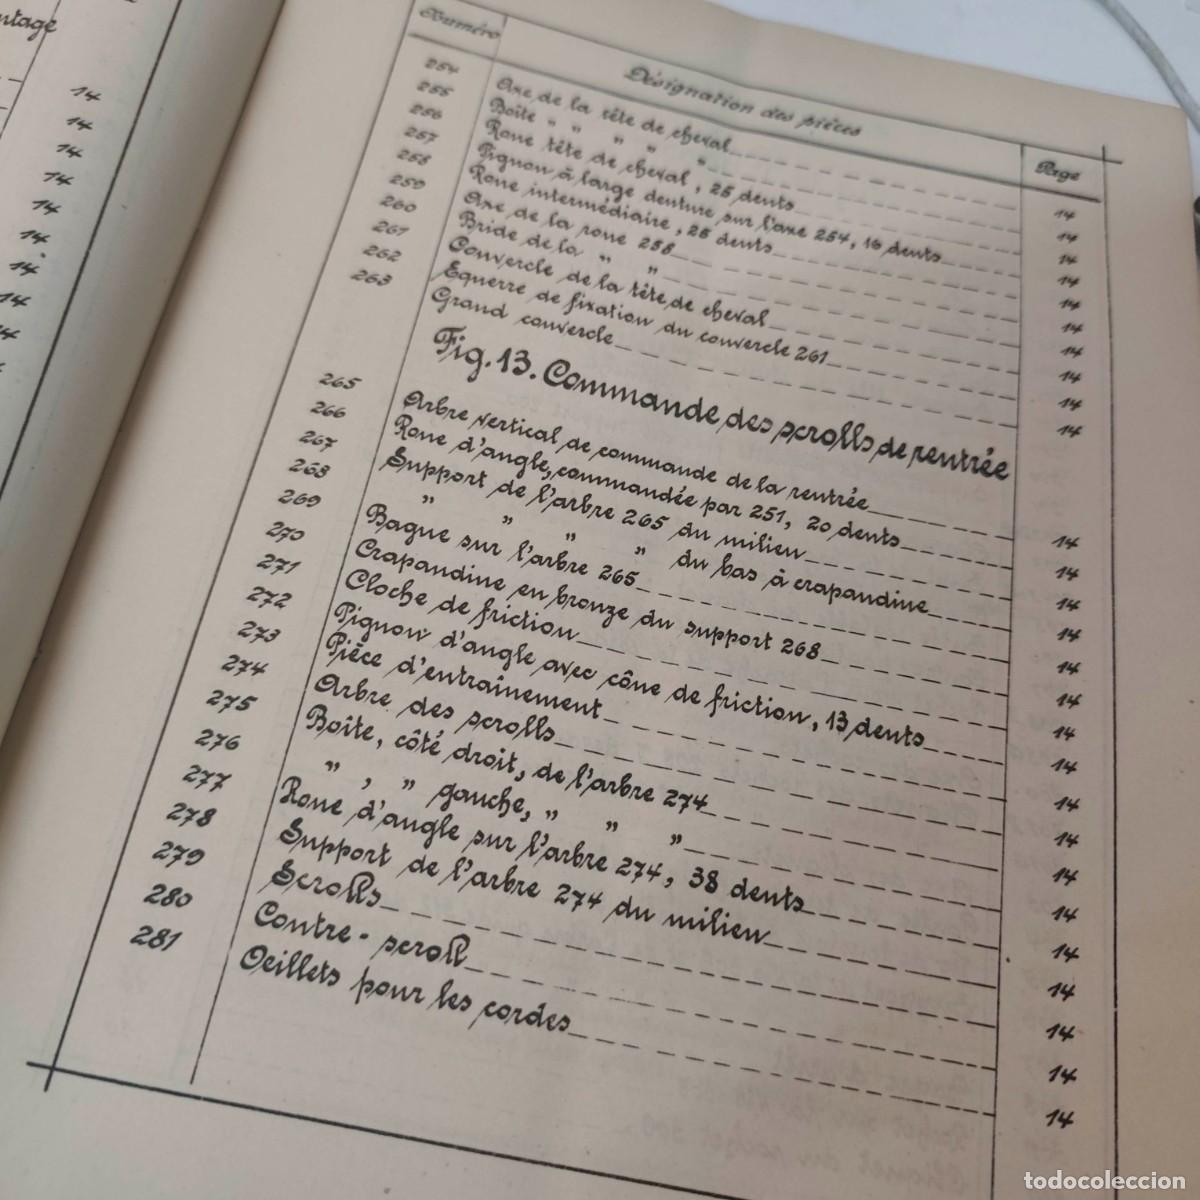 ntage
14
14
14
14
14
14
14
14
Numéro Désignation des pièces Page
254 Axe de la tête de cheval 14
255 Boîte " " " " " 14
256 Roue tête de cheval, 25 dents 14
257 Pignon à large denture sur l'axe 254, 16 dents 14
258 Roue intermédiaire, 25 dents 14
259 Axe de la roue 258 14
260 Bride de la " " 14
261 Couvercle de la tête de cheval 14
262 Equerre de fixation du couvercle 261 14
263 Grand couvercle 14
Fig. 13. Commande des scrolls de rentrée
265 Arbre vertical de commande de la rentrée 14
266 Roue d'angle, commandée par 251, 20 dents 14
267 Support de l'arbre 265 du milieu 14
268 " " " " du bas à crapaudine 14
269 Bague sur l'arbre 265 14
270 Crapaudine en bronze du support 268 14
271 Cloche de friction 14
272 Pignon d'angle avec cône de friction, 13 dents 14
273 Pièce d'entraînement 14
274 Arbre des scrolls 14
275 Boîte, côté droit, de l'arbre 274 14
276 " , " gauche, " " " 14
277 Roue d'angle sur l'arbre 274, 38 dents 14
278 Support de l'arbre 274 du milieu 14
279 Scrolls 14
280 Contre-scroll 14
281 Oeillets pour les cordes 14
todocoleccion